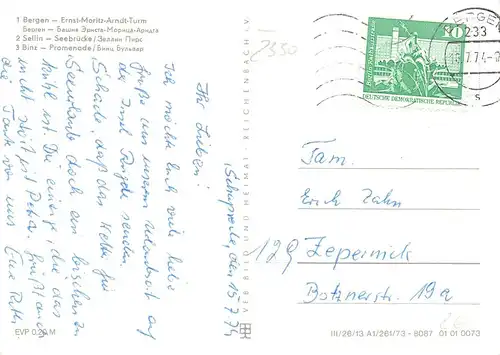 1 Bergen – Ernst-Moritz-Arndt-Turm
Берген – Башне Эрнста-Морица-Арндта
2 Sellin – Seebrücke/Зеллин Пирс
3 Binz – Promenade/Бинц Бульвар
Schaprode, den 15.7.74
Ihr Lieben!
Ich möchte Euch viele liebe
Grüße aus unserem Urlaubsort auf
der Insel Rügen senden.
Schade, daß das Wetter für
Seeurlaub doch ein bisschen zu
kühl ist. Die einzige, die das
nicht stört ist Petra.
von uns Eure
EVP 0,20 M
BILD UND HEIMAT REICHENBACH I. V.
2330
BERGEN
233
7.74
s
10
DEUTSCHE DEMOKRATISCHE REPUBLIK
Fam.
Erich Zahn
129 Zepernick
Botznerstr. 19a
III/26/13 A1/261/73 - 8087 01 01 0073